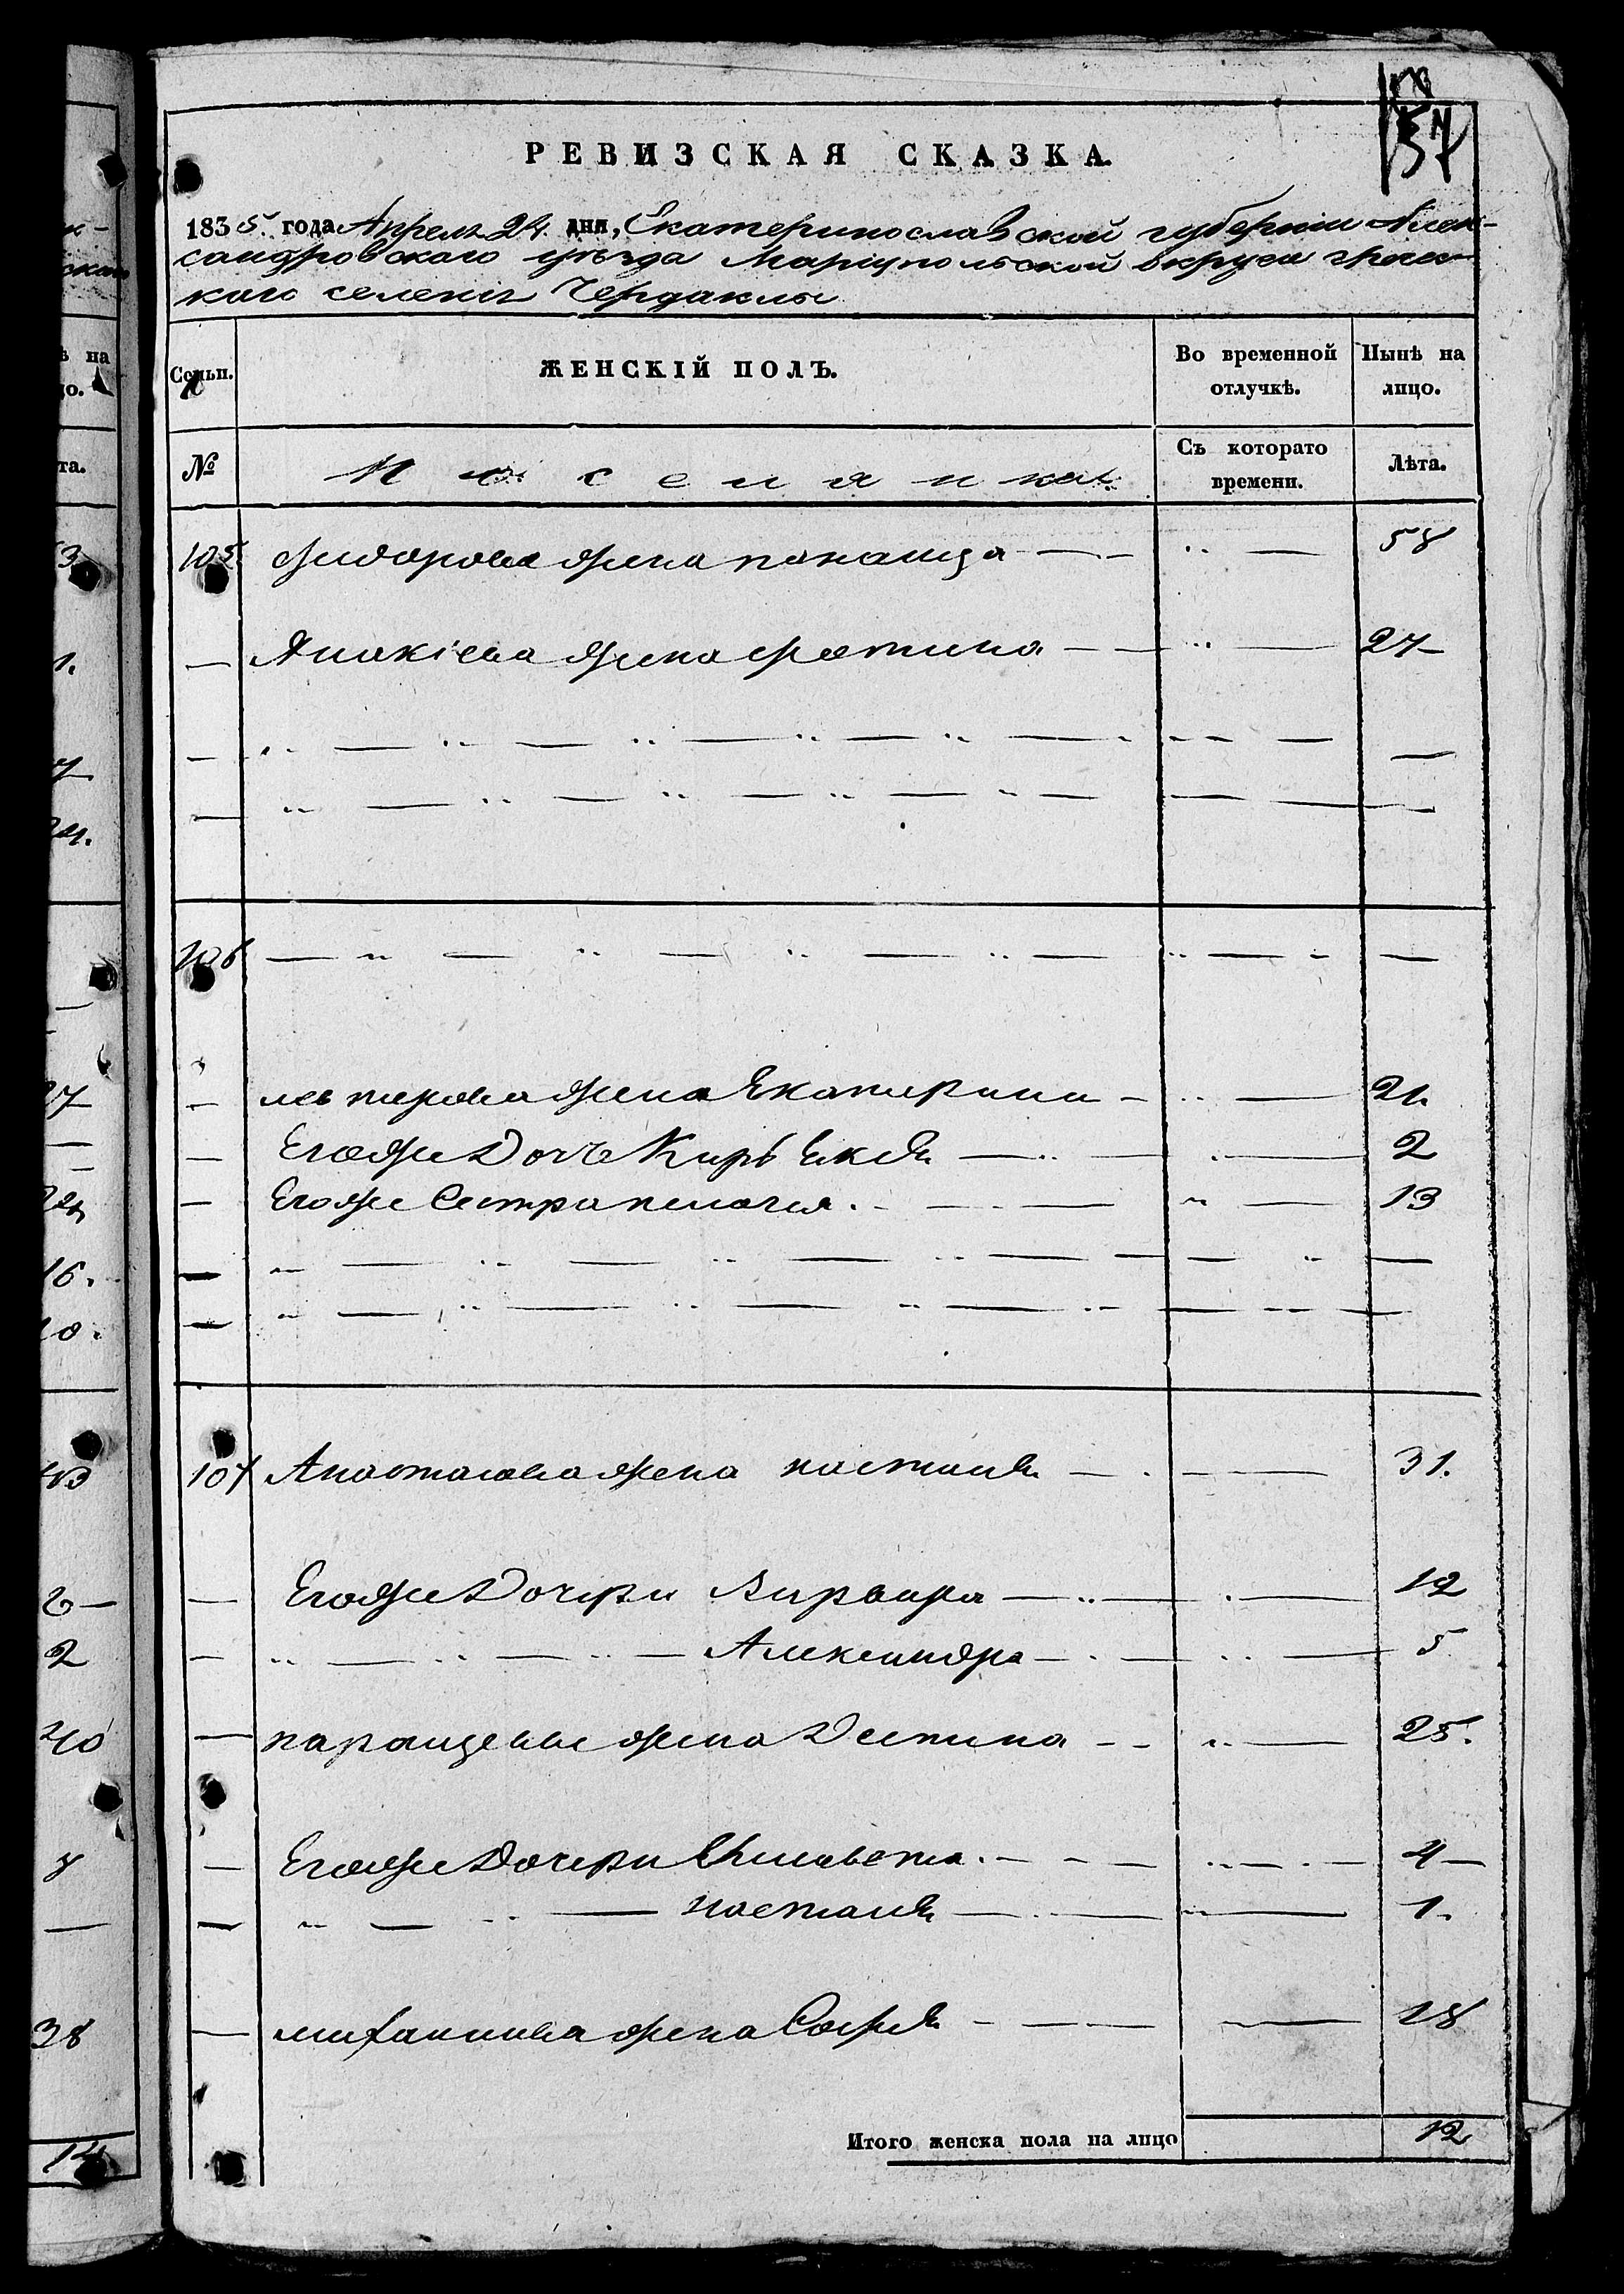 57
РЕВИЗСКАЯ СКАЗКА.
1835. года Апреля 24. дня, Екатеринославской губернии Алек-
сандровского уѣзда Мариупольской округи гречес-
каго селенія Чердаклы
Семьи. ЖЕНСКІЙ ПОЛЪ. Во временной отлучкѣ. Нынѣ на лицо.
№ Поселянка. Съ которато времени. Лѣта.
105. Ѳидорова жена панаида 58
Анакіева жена Фотина 27
106
лефтерова жена Екатерина 21.
Егоже Дочь Кирѣекія 2
Егоже Сестра пелагея. 13
107 Анастасова жена настасія 31.
Егоже Дочери Варвара 12
Александра 5
жена Деспина 25.
Егоже Дочери Елисавета. 4
настасія 1.
михаилова жена Софія 18
Итого женска пола на лицо 12